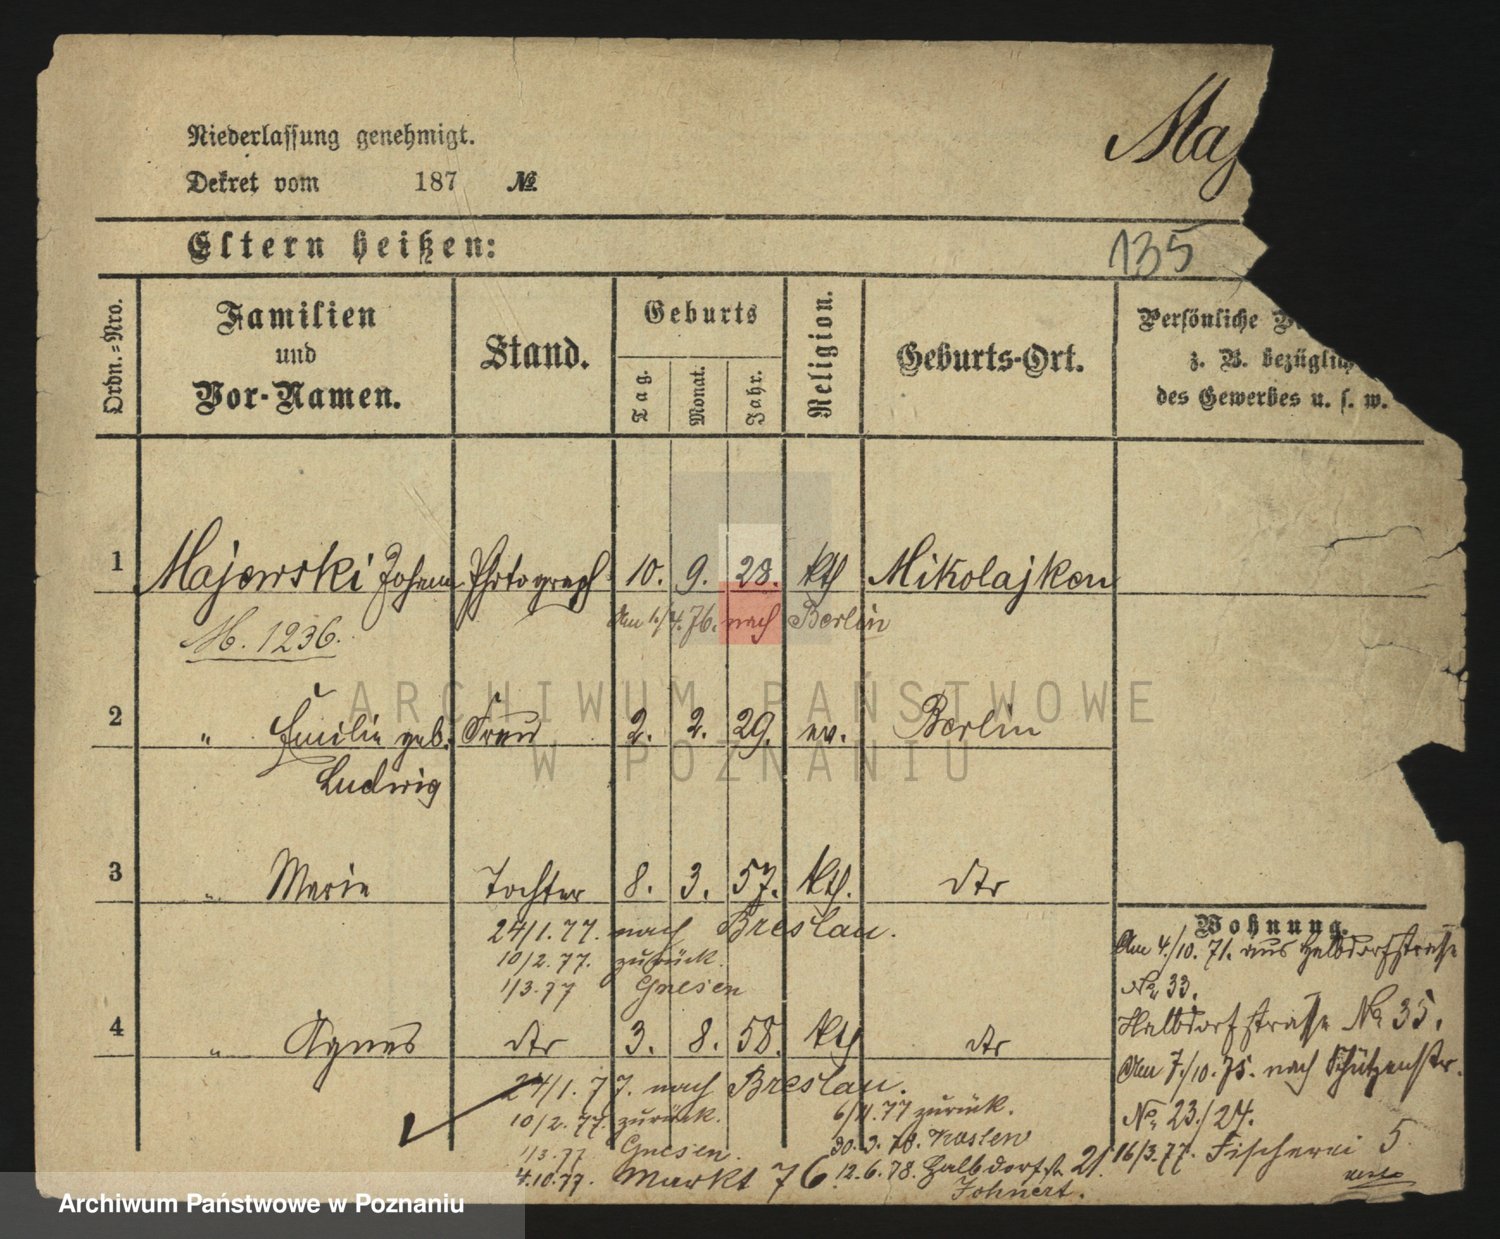 Niederlassung genehmigt.
Dekret vom 187 №
Maj
Eltern heißen:
135
Ordn.-Nro.
Familien
und
Vor-Namen.
Stand.
Geburts
Tag.
Monat.
Jahr.
Religion.
Geburts-Ort.
Persönliche
z. B. bezüglich
des Gewerbes u. s. w.
1 Majewski Johann Photograph 10. 9. 28. kth Mikolajken
Am 1./4.76. nach Berlin
M. 1236.
2 " Emilie geb. Frau 2. 2. 29. ev. Berlin
Ludwig
3 " Marie Tochter 8. 3. 57. kth. dto
24/1.77. nach Breslau.
10/2.77. zurück.
1/3.77 Gnesen
4 " Agnes dto 3. 8. 58. kth dto
24/1.77. nach Breslau.
10/2.77. zurück.
1/3.77 Gnesen.
4.10.77. Markt 76.
6/11.77 zurück.
30.3.78.
12.6.78. Halbdorfstr. 21.
Wohnung.
Am 4./10.71. aus Halbdorfstraße
№ 33.
Halbdorfstraße № 35.
Am 7./10.75. nach Schützenstr.
№ 23./24.
16/3.77. Fischerei 5
ARCHIWUM PAŃSTWOWE
W POZNANIU
Archiwum Państwowe w Poznaniu